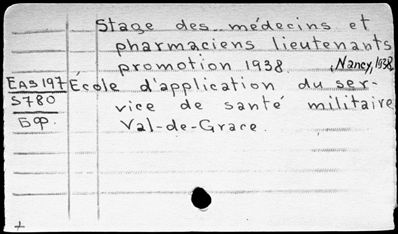 Stage des médecins et
pharmaciens lieutenants
promotion 1938. , Nancy, 1938.
EAS197 École d'application du ser-
S780 vice de santé militaire
БФ. Val-de-Grace.